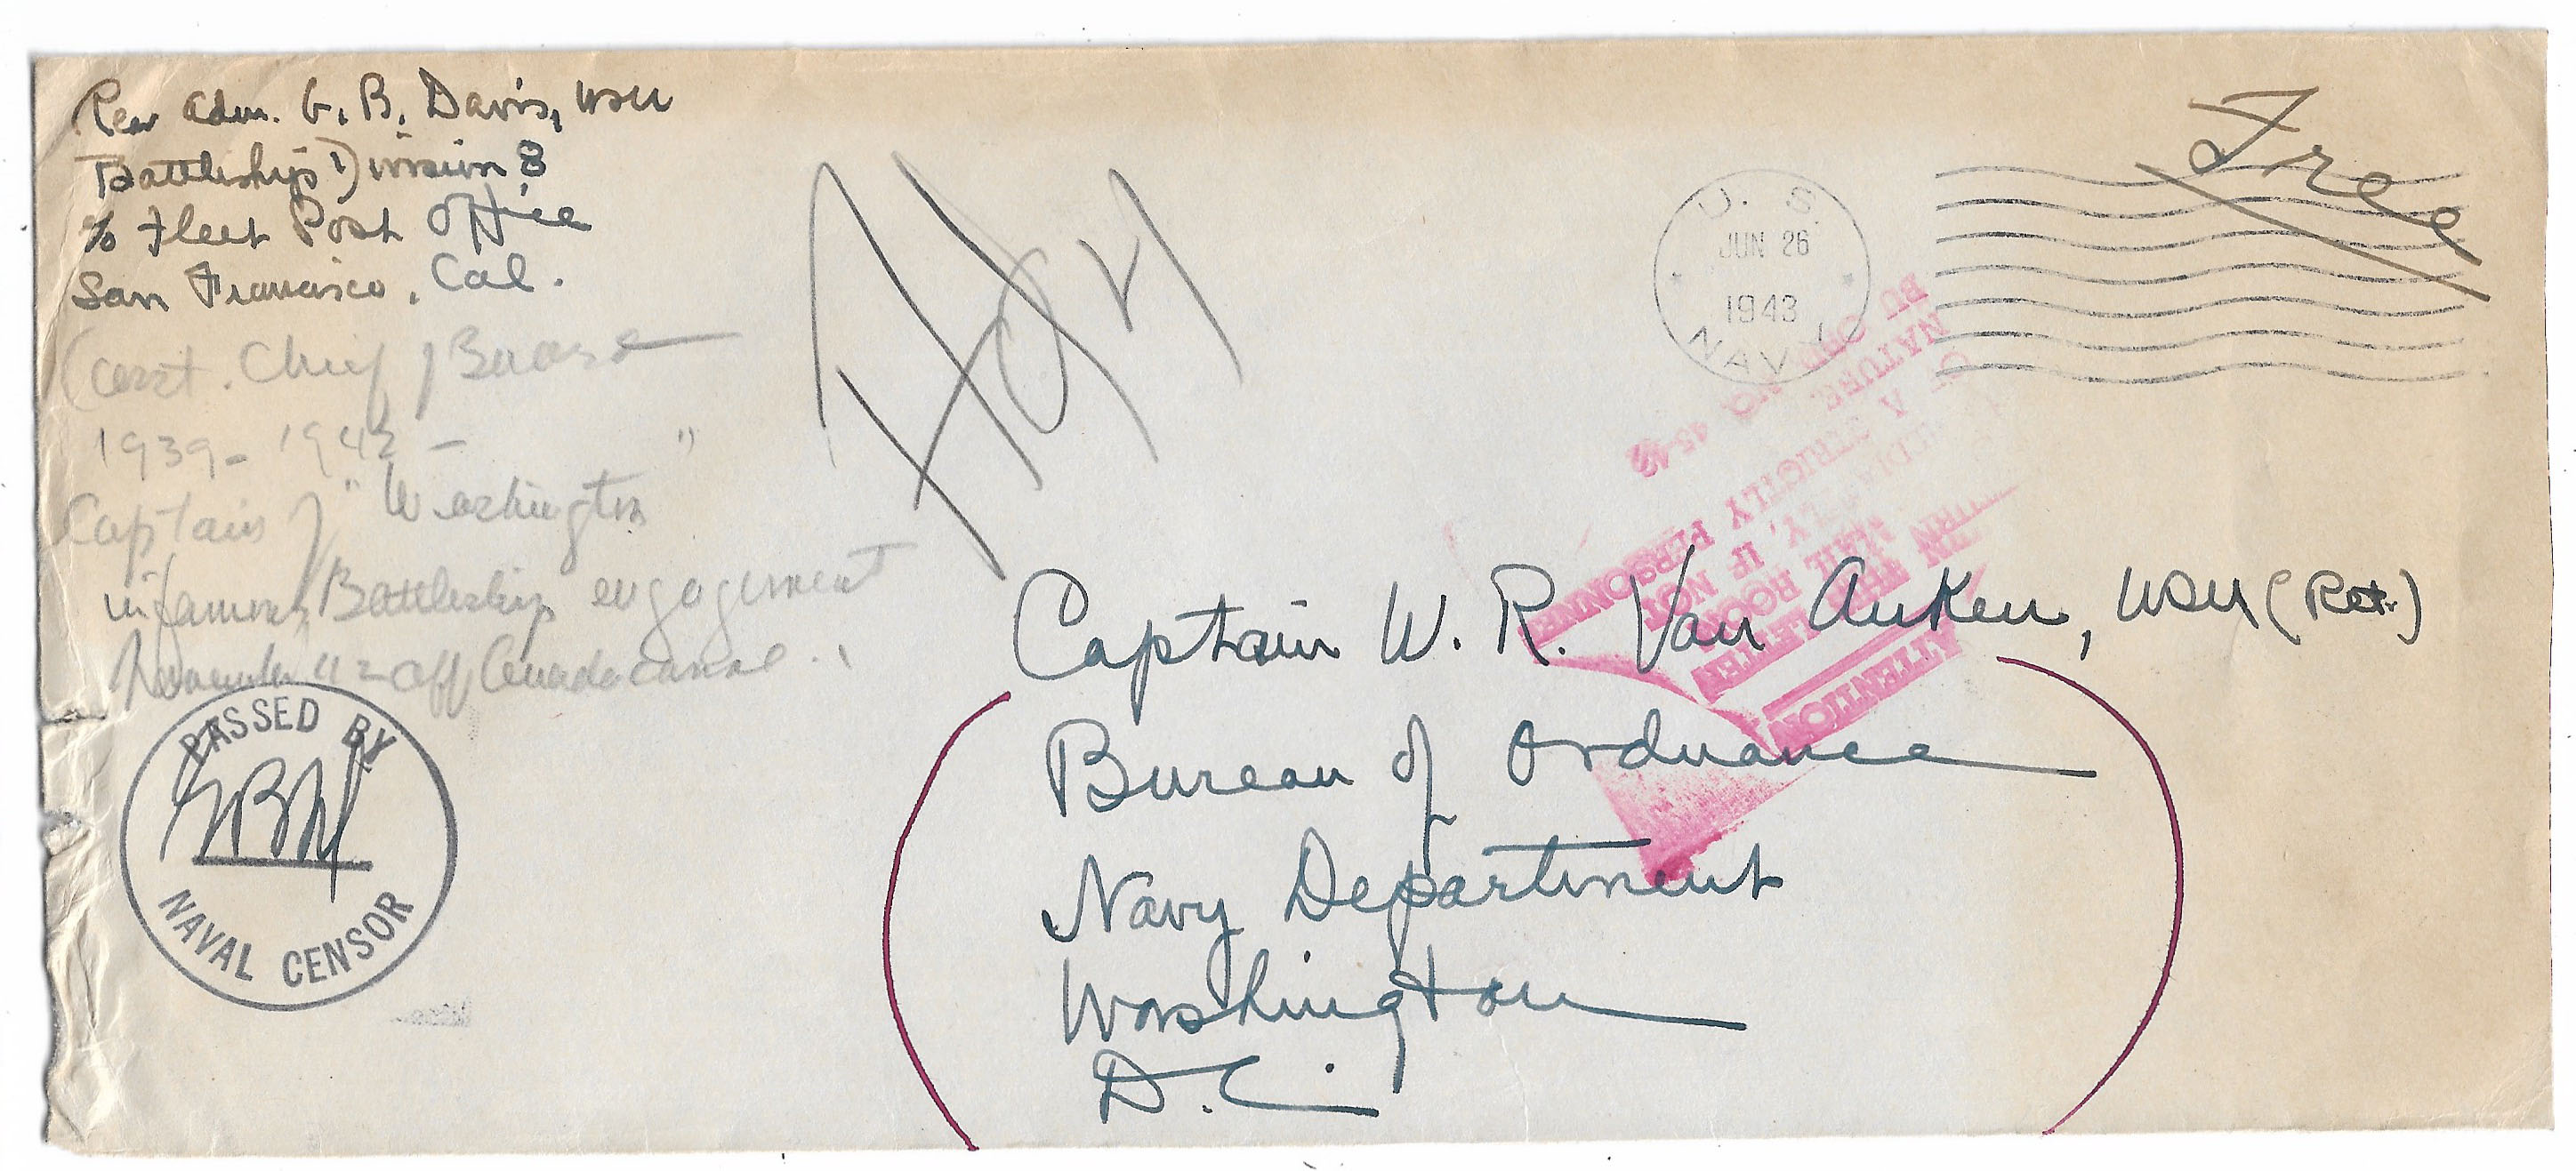 Rear Adm. G. B. Davis, USN
Battleship Division 8
c/o Fleet Post Office
San Francisco, Cal.
Free
U. S.
JUN 26
1943
NAVY
(asst. Chief BuOrd
1939 - 1942 -
Captain of "Washington"
in famous Battleship engagement
November 42 off Guadalcanal.
PASSED BY
GBD
NAVAL CENSOR
Captain W. R. Van Auken, USN (Ret.)
Bureau of Ordnance
Navy Department
Washington
D.C.
ATTENTION
LETTER
MAIL ROOM
IF NOT
OF A STRICTLY PERSONNEL
NATURE
BU ORD